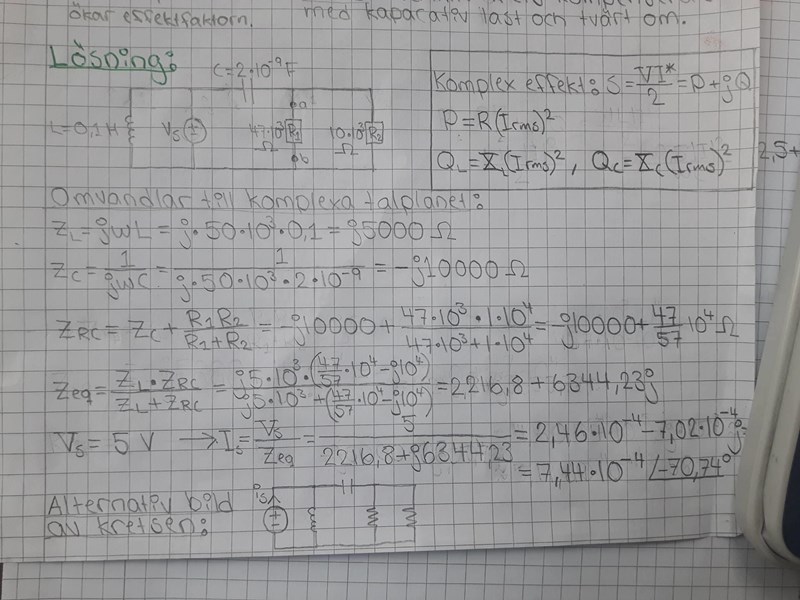 ökar effektfaktorn.
med kapacativ last och tvärt om.
Lösning:
C=2·10⁻⁹F
L=0,1H
Vs
47·10³ Ω
R1
a
b
10·10³ Ω
R2
Komplex effekt: S=VI*/2=P+jQ
P=R(Irms)²
QL=XL(Irms)², QC=XC(Irms)²
2,5+
Omvandlar till komplexa talplanet:
ZL=jωL=j·50·10³·0,1=j5000Ω
ZC=1/jωC=1/j·50·10³·2·10⁻⁹=-j10000Ω
ZRC=ZC+R1R2/R1+R2=-j10000+47·10³·1·10⁴/47·10³+1·10⁴=-j10000+47/57 10⁴Ω
Zeq=ZL·ZRC/ZL+ZRC=j5·10³·(47/57·10⁴-j10⁴)/j5·10³+(47/57·10⁴-j10⁴)=2216,8+6344,23j
Vs=5 V →Is=Vs/Zeq=5/2216,8+j6344,23=2,46·10⁻⁴-7,02·10⁻⁴j
=7,44·10⁻⁴∠-70,74°
Alternativ bild
av kretsen:
is